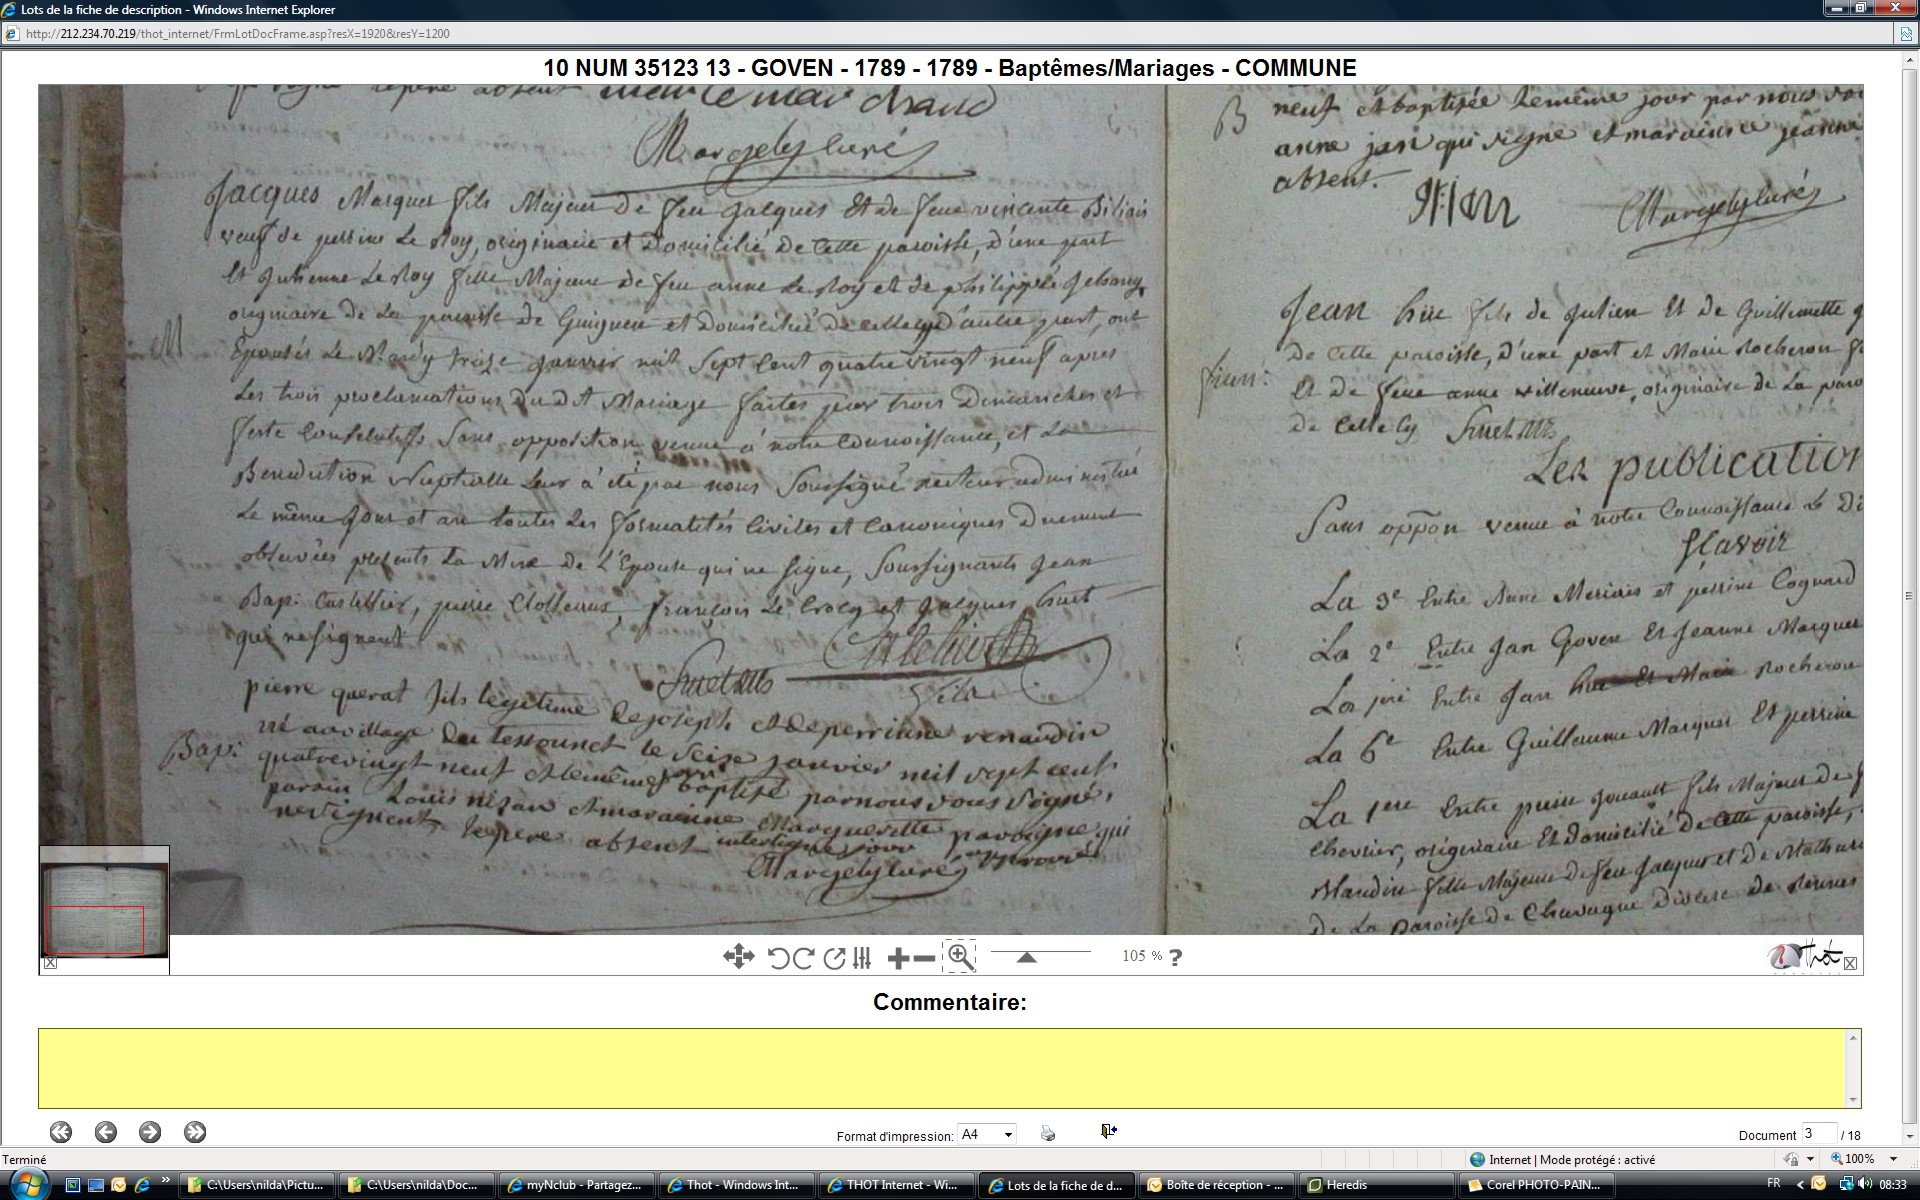 Lots de la fiche de description - Windows Internet Explorer
http://212.234.70.219/thot_internet/FrmLotDocFrame.asp?resX=1920&resY=1200
10 NUM 35123 13 - GOVEN - 1789 - 1789 - Baptêmes/Mariages - COMMUNE
absent
Jacques Marquer fils Majeur de feu Jacques Et de feue vincente
veuf de perrine Le Roy, originaire et Domicilié de Cette paroisse, D'une part
Et Julienne Le Roy fille Majeure de feu anne Le Roy et de philippe
M
originaire de La paroisse de Guignen et Domiciliée de celle cy d'autre part, ont
Epousés Le Mardy treize Janvier mil Sept Cent quatre vingt neuf apres
Les trois proclamations Du dit Mariage faites par trois Dimanches et
feste Consecutifs Sans opposition venue à notre Connoissance, et La
Benediction Nuptialle Leur à été par nous Soussigné recteur administré
Le même Jour et an toutes Les formalités Civiles et Canoniques Duement
observées presents La Mere de L'Epouse qui ne signe, Soussignants Jean
Bap: pierre françois Le Crocq et Jacques huet
qui ne signent
Bap:
pierre querat fils legitime de joseph et de perrinne renaudin
né au village du tessounet le seize janvier mil sept cent
quatrevingt neuf et le même jour baptisé par nous sous signé,
parain Louis et maraine Margueritte qui
ne signent le pere absent interligne jour approuvé
B
neuf et baptisée le même jour par nous
anne jan qui signe et maraine jeanne
absent.
Jean hüe fils de Julien Et de Guillemette
fian:
de Cette paroisse, D'une part et Marie Rocheron
Et de feue anne villeneuve, originaire de La
de Celle Cy
Les publication
Sans oppōn venue à notre Connoissance Le
Scavoir
La 3e Entre et perrine Cognard
La 2e Entre Jan Goven Et Jeanne Marquer
La Entre Jan hue Et Marie Rocheron
La 6e Entre Guillaume Marquer Et perrine
La 1ere Entre pierre Jouault fils Majeur de
Chevrier, originaire Et Domicilié de Cette paroisse,
Blandin fille Majeure de feu Jacques et de
De La paroisse de Chavagne Diocese de Rennes
105 % ?
Thot
Commentaire:
Format d'impression: A4
Document 3 / 18
Terminé
Internet | Mode protégé : activé
100%
C:\Users\nilda\Pictu...
C:\Users\nilda\Doc...
myNclub - Partagez...
Thot - Windows Int...
THOT Internet - Wi...
Lots de la fiche de d...
Boîte de réception - ...
Heredis
Corel PHOTO-PAIN...
FR
08:33